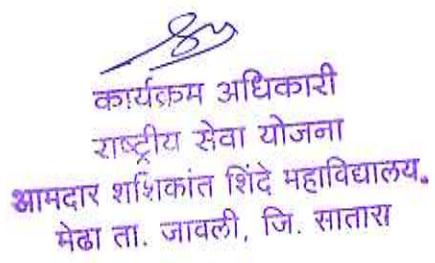 कार्यक्रम अधिकारी
राष्ट्रीय सेवा योजना
आमदार शशिकांत शिंदे महाविद्यालय.
मेढा ता. जावली, जि. सातारा